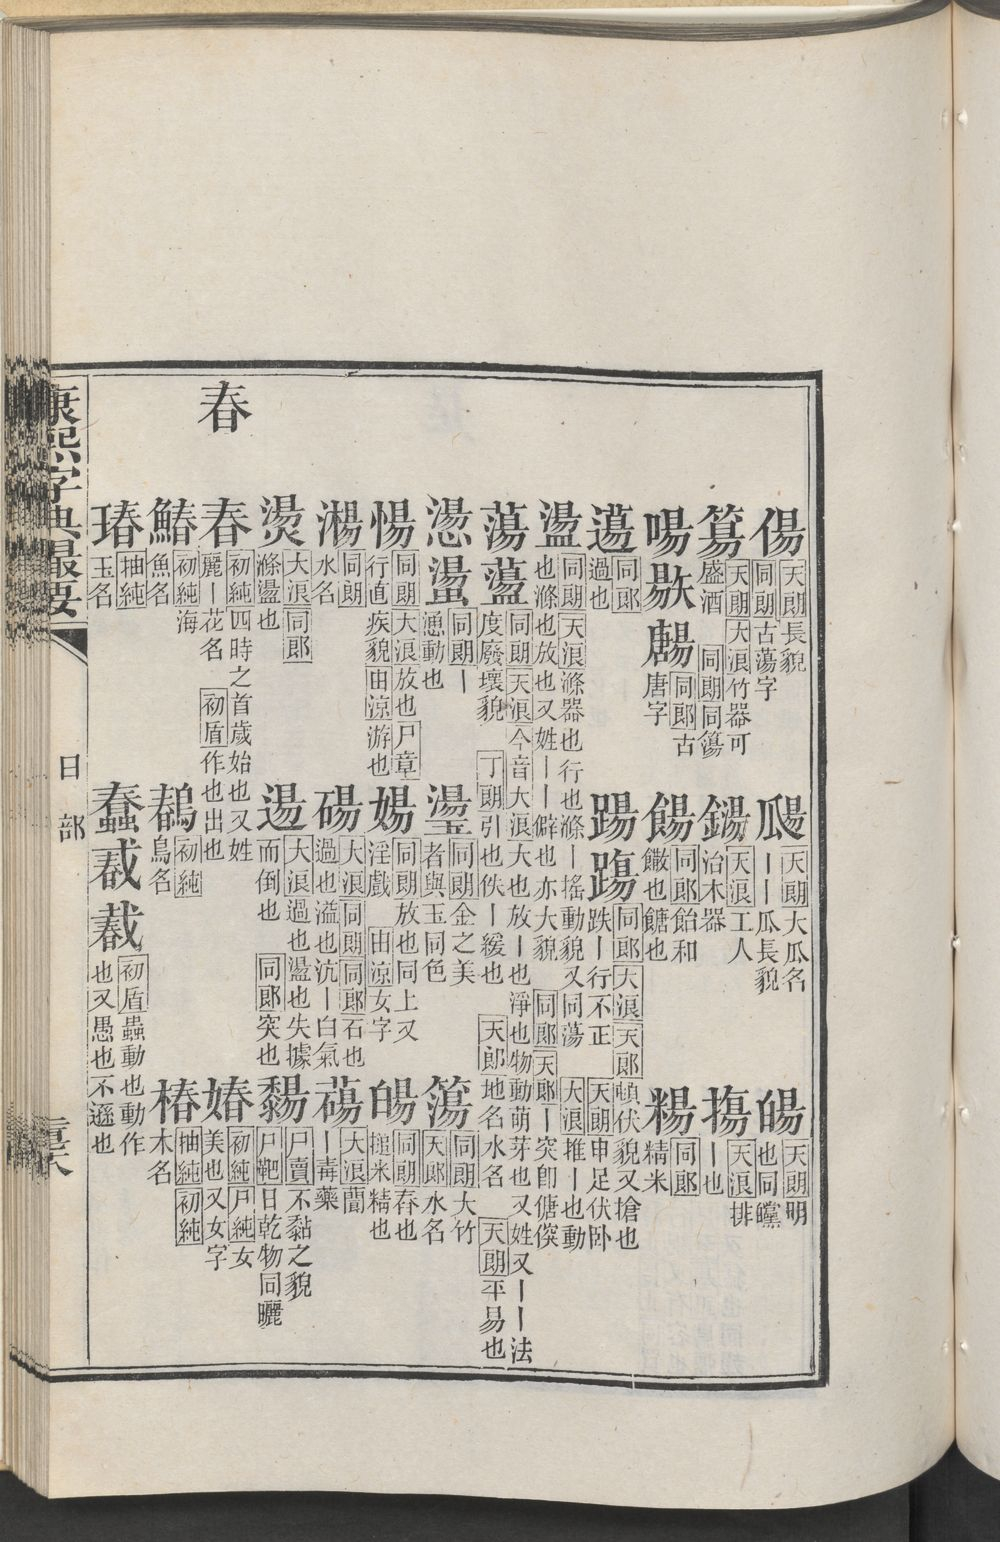 偒 天朗長貌同朗古蕩字 𤬾 天朗大瓜名丨丨瓜長貌 㬺 天朗明也同矘
簜 天朗大浪竹器可盛酒 同朗同簜 鐊 天浪工人治木器 摥 天浪排丨也
啺 㪾 鶶 同郎古唐字 餳 同郎飴和饊也餹也 糃 同郎精米
逿 同郎過也 踼 踢 同郎大浪天郎頓伏貌又搶也跌丨行不正 天朗申足伏卧
盪 同朗天浪滌器也行也滌丨搖動貌又同蕩 大浪推丨也動也滌也放也又姓丨丨僻也亦大貌 同郎天郎丨突卽傏傸
蕩 蘯 同朗天浪今音大浪大也放丨也淨也物動萌芽也又姓又丨丨法度廢壞貌 丁朗引也佚丨緩也 天郎地名水名 天朗平易也
愓 蝪 同朗丨慂動也 璗 同朗金之美者與玉同色 簜 同朗大竹天郎水名
愓 同朗大浪放也尸章行直疾貌由涼游也 婸 同朗放也同上又淫戲 由涼女字 㬺 同朗舂也搥米精也
潒 同朗水名 碭 大浪同朗同郎石也過也溢也沆丨白氣 蕩 大浪藺丨毒藥
燙 大浪同郎滌盪也 逿 大浪過也盪也失據而倒也 同郎突也 䵘 尸賣不黏之貌尸靶日乾物同曬
春
春 初純四時之首歲始也又姓麗丨花名 初盾作也出也 媋 初純尸純女美也又女字
鰆 初純海魚名 鶞 初純鳥名 椿 抽純初純木名
瑃 抽純玉名 蠢 𢧨 𢧵 初盾蟲動也動作也又愚也不遜也
康熙字典撮要
日部